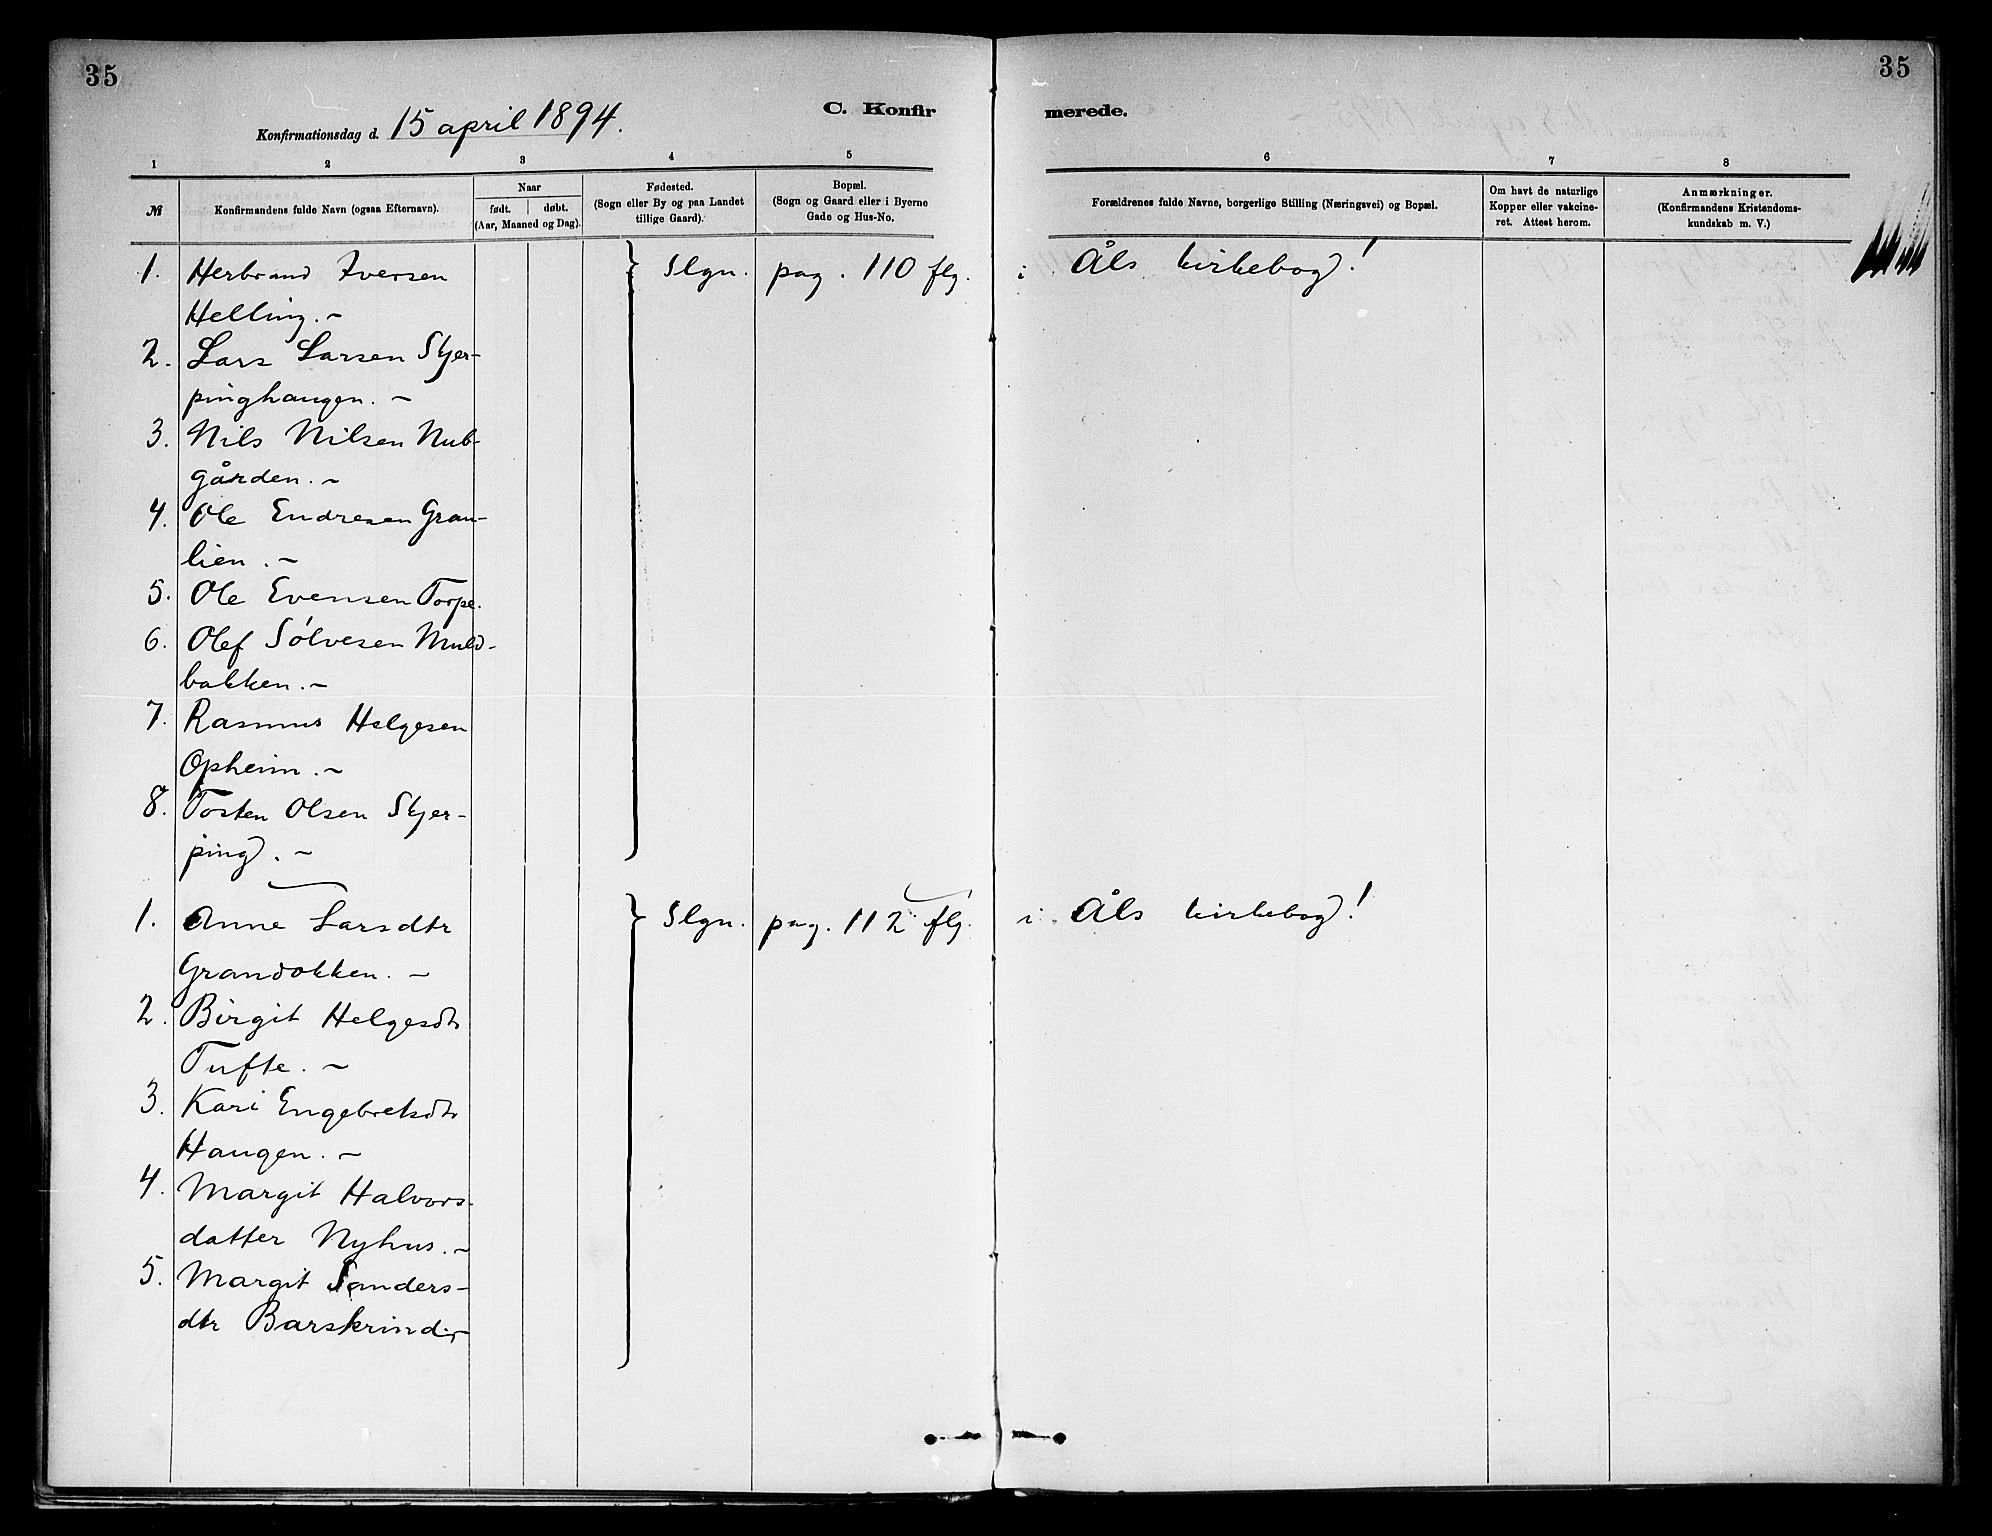 35
35
C. Konfir
merede.
Konfirmationsdag d. 15 april 1894.
1 2 3 4 5 6 7 8
№
Konfirmandens fulde Navn (ogsaa Efternavn).
Naar
født. døbt.
(Aar, Maaned og Dag).
Fødested.
(Sogn eller By og paa Landet
tillige Gaard).
Bopæl.
(Sogn og Gaard eller i Byerne
Gade og Hus-No.
Forældrenes fulde Navne, borgerlige Stilling (Næringsvei) og Bopæl.
Om havt de naturlige
Kopper eller vakcine-
ret. Attest herom.
Anmærkninger.
(Konfirmandens Kristendoms-
kundskab m. V.)
1. Herbrand Iversen Slgn. pag. 110 flg. i Åls kirkebog!
Helling. ~
2. Lars Larsen Skjer-
pinghaugen. ~
3. Nils Nilsen Nub-
gården. ~
4. Ole Endresen Gran-
lien. ~
5. Ole Evensen Torpe.
6. Olef Sølvesen Muld-
bakken. ~
7. Rasmus Helgesen
Opheim. ~
8. Tosten Olsen Skjer-
ping. ~
1. Anne Larsdtr Slgn. pag. 112 flg. i Åls kirkebog!
Grandokken. ~
2. Birgit Helgesdtr
Tufte. ~
3. Kari Engebretsdtr
Haugen. ~
4. Margit Halvors-
datter Nyhus. ~
5. Margit Sanders-
dtr Barskrind. ~